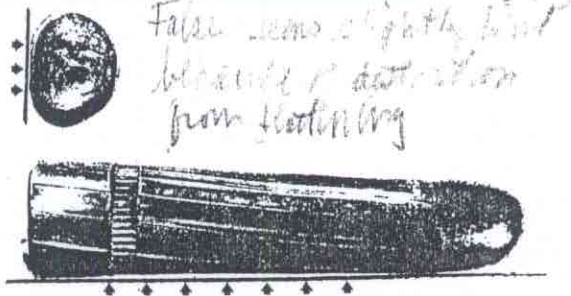 False seems slightly bent
because of distortion
from flattening